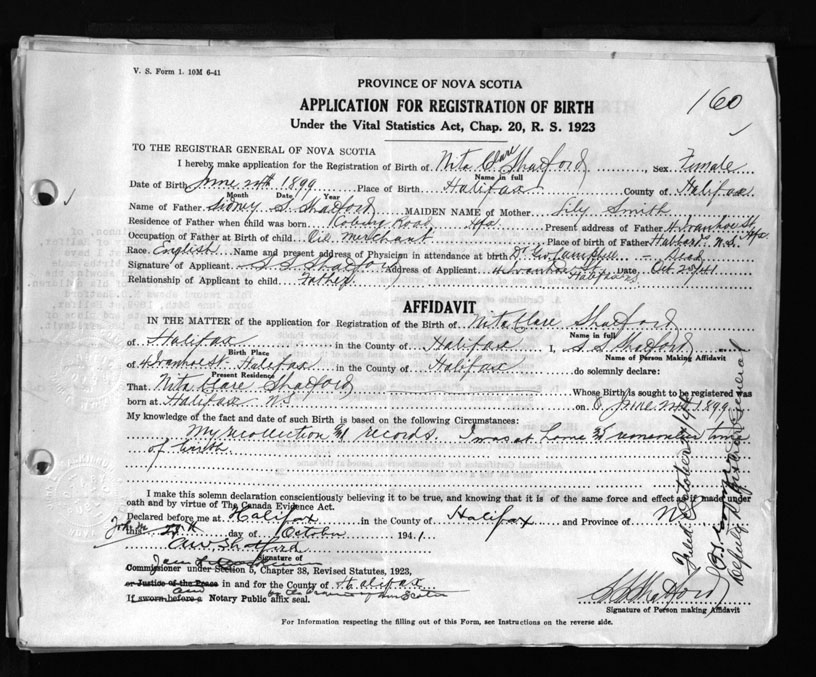 V. S. Form 1. 10M 6-41
160
PROVINCE OF NOVA SCOTIA
APPLICATION FOR REGISTRATION OF BIRTH
Under the Vital Statistics Act, Chap. 20, R. S. 1923
TO THE REGISTRAR GENERAL OF NOVA SCOTIA
I hereby make application for the Registration of Birth of Nita Clare Shatford, Sex Female
Name in full
Date of Birth June 1899 Place of Birth Halifax County of Halifax
Month Date Year
Name of Father Sidney S. Shatford MAIDEN NAME of Mother Lily Smith
Residence of Father when child was born Road Hfx Present address of Father 4 Ivanhoe St Hfx
Occupation of Father at Birth of child Oil Merchant Place of birth of Father N.S.
Race English Name and present address of Physician in attendance at birth Dr. Geo Campbell - Dead
Signature of Applicant S. S. Shatford Address of Applicant 4 Ivanhoe St Date Oct 41
Halifax NS
Relationship of Applicant to child Father
AFFIDAVIT
IN THE MATTER of the application for Registration of the Birth of Nita Clare Shatford
Name in full
of Halifax in the County of Halifax I, S S Shatford
Birth Place Name of Person Making Affidavit
of 4 Ivanhoe St Halifax in the County of Halifax do solemnly declare:
Present Residence
That Nita Clare Shatford Whose Birth is sought to be registered was
born at Halifax NS on June 1899
My knowledge of the fact and date of such Birth is based on the following Circumstances:
My recollection & records I was at home & remember time
of birth
I make this solemn declaration conscientiously believing it to be true, and knowing that it is of the same force and effect as if made under
oath and by virtue of The Canada Evidence Act.
Declared before me at Halifax in the County of Halifax and Province of NS
this day of October 1941
Shatford
Signature of
Commissioner under Section 5, Chapter 38, Revised Statutes, 1923,
or Justice of the Peace in and for the County of Halifax
and
If sworn before a Notary Public affix seal.
S S Shatford
Signature of Person making Affidavit
For Information respecting the filling out of this Form, see Instructions on the reverse side.
Filed October
Deputy Registrar General